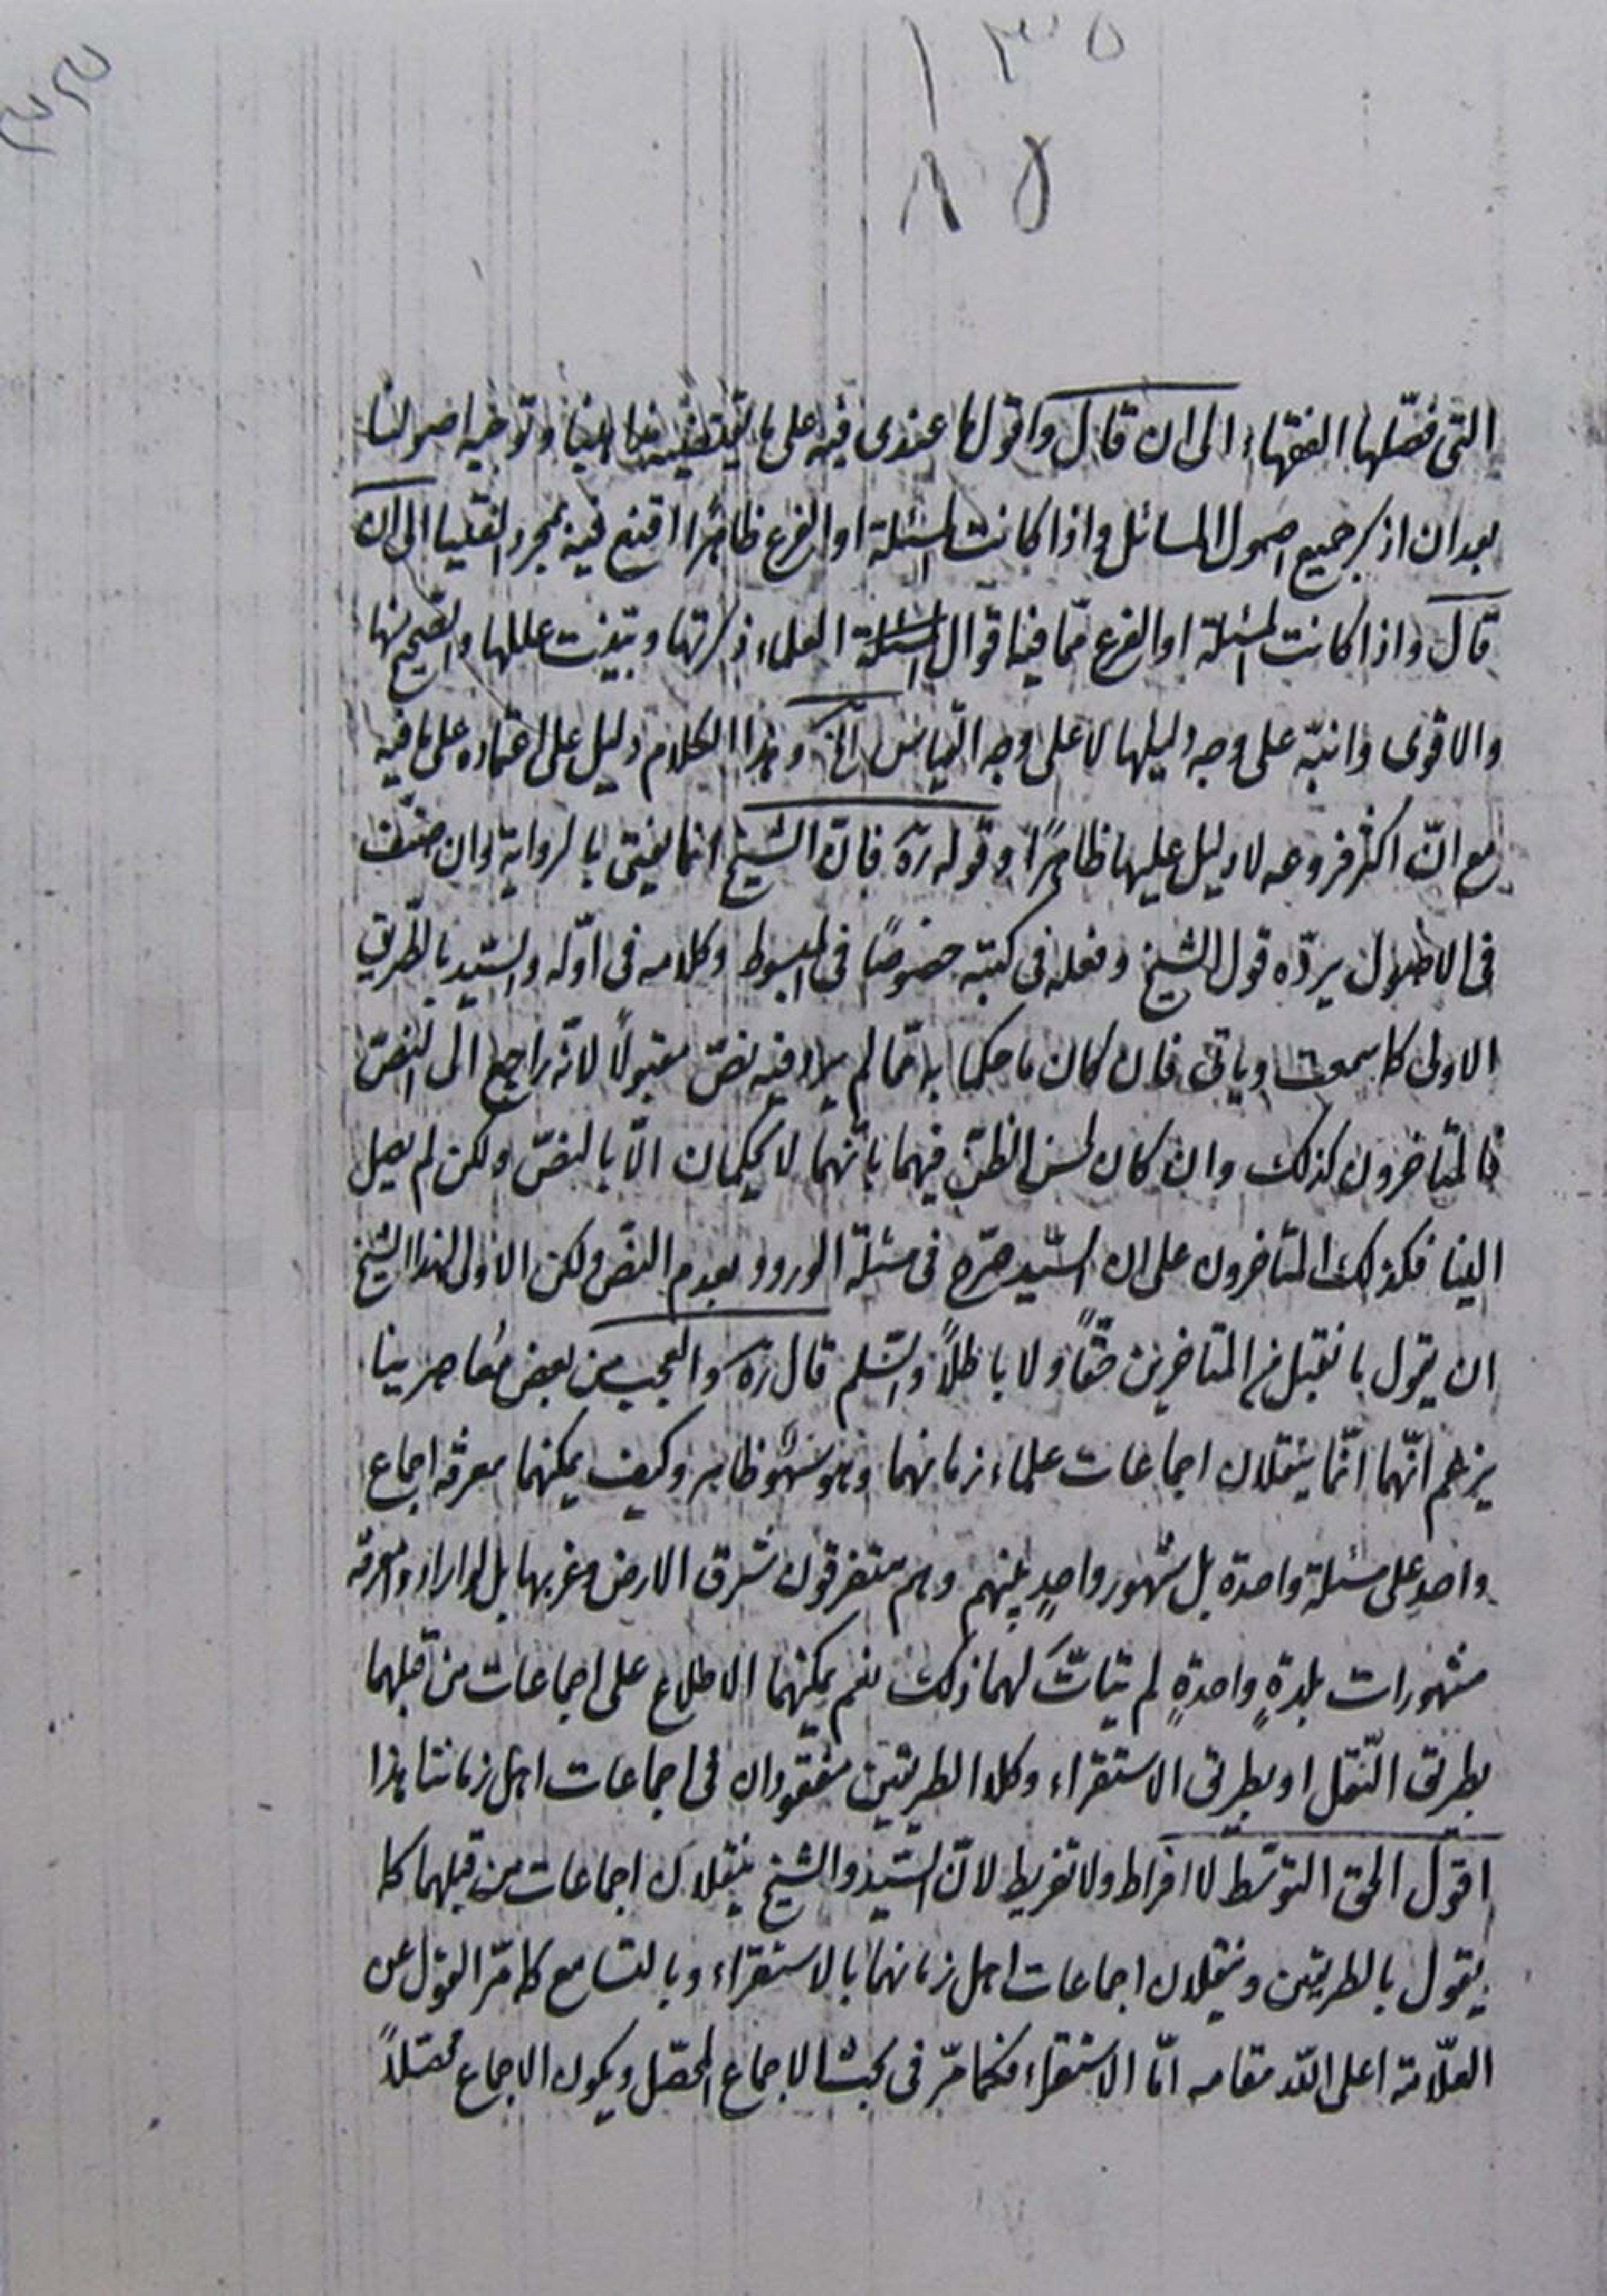 ١٣٥
٨٥
التی فصّلها الفقهاء الی ان قال واقول ما عندی فیه علی ما یقتضیه مذاهبنا وتوجبه اصولنا
بعد ان اذکر جمیع اصول المسائل واذا کانت المسئلة او الفرع ظاهرًا اقنع فیه بمجرد الفتیا الی ان
قال واذا کانت المسئلة او الفرع ممّا فیها اقوال العلماء ذکرتها وبیّنت عللها والصحیح منها
والاقوی وانبّه علی وجه دلیلها لا علی وجه القیاس الخ وهذا الکلام دلیل علی اعتماده علی ما فیه
مع انّ اکثر فروعه لا دلیل علیها ظاهرًا وقوله ره فانّ الشیخ انما یفتی بالروایة وان ضعّف
فی الاصول یردّه قول الشیخ وفعله فی کتبه خصوصًا فی المبسوط وکلامه فی اوّله والسّید بالطریق
الاولی کما سمعت ویاتی فان کان ما حکما به ممّا لم یرد فیه نصّ مقبولًا لانّه راجع الی النصّ
فالمتاخرون کذلک وان کان لحسن الظنّ فیهما بانّهما لا یحکمان الّا بالنصّ ولکن لم یصل
الینا فکذلک المتاخرون علی ان السّید صرّح فی مسئلة الورود بعدم النصّ ولکن الاولی لهذا الشیخ
ان یقول ما نقبل من المتاخرین حقّاً ولا باطلاً والسّلم قال ره والعجب من بعض مُعاصرینا
یزعم انّهما انّما ینقلان اجماعات علماء زمانهما وهو سَهْو ظاهر وکیف یمکنهما معرفة اجماع
واحد علی مسئلة واحدة بل مشهور واحدٍ بینهم وهم متفرقون شرق الارض وغربها بل لو ارادوا معرفة
مشهورات بلدةٍ واحدةٍ لم یتاتّ لهما ذلک نعم یمکنهما الاطلاع علی اجماعات من قبلهما
بطریق النّقل او بطریق الاستقراء وکلا الطریقین مفقودان فی اجماعات اهل زماننا هذا
اقول الحق التوسّط لا افراط ولا تفریط لانّ السّید والشیخ ینقلان اجماعات من قبلهما کما
یقول بالطریقین وینقلان اجماعات اهل زمانهما بالاستقراء وبالتسامع کما مرّ القول عن
العلّامة اعلی اللّه مقامه امّا الاستقراء فکما مرّ فی بحث الاجماع المحصّل ویکون الاجماع محصّلاً